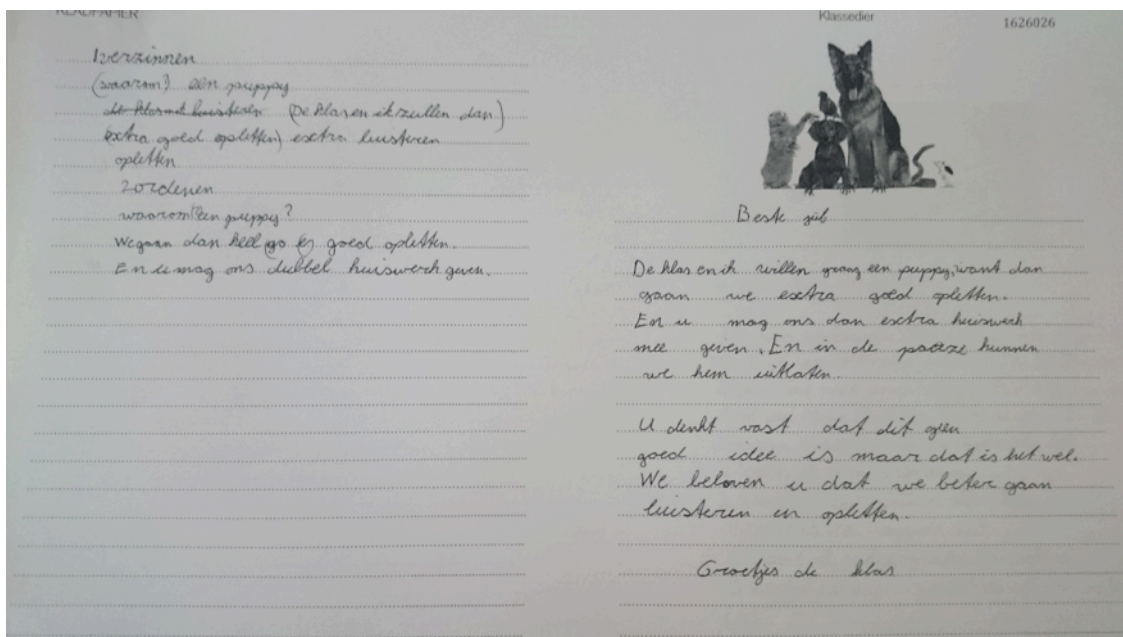 KLADPAPIER
1verzinnen
(waarom?) een puppy
de klas met luisteren (De klas en ik zullen dan)
(extra goed opletten) esctra luisteren
opletten
2ordenen
waarom een puppy?
We gaan dan heel goed opletten.
En u mag ons dubbel huiswerk geven.
Klassedier
1626026
Beste juf
De klas en ik willen graag een puppy, want dan
gaan we esctra goed opletten.
En u mag ons dan esctra huiswerk
mee geven. En in de pauze kunnen
we hem uitlaten.
U denkt vast dat dit geen
goed idee is maar dat is het wel.
We beloven u dat we beter gaan
luisteren en opletten.
Groetjes de klas